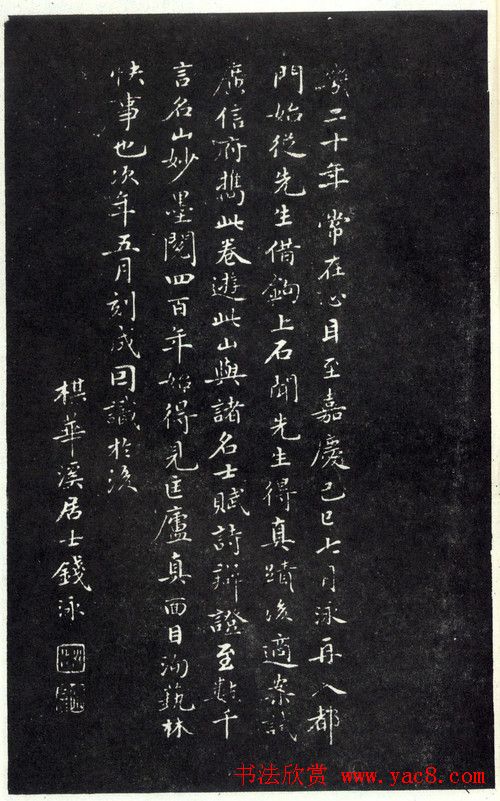 二十年常在心目至嘉慶己巳七月泳再入都
門始從先生借鉤上石聞先生得真蹟後適案試
廣信府携此卷遊此山與諸名士賦詩辨證至數千
言名山妙墨閱四百年始得見匡廬真面目洵藝林
快事也次年五月刻成因識於後
楳華溪居士錢泳
书法欣赏 www.yac8.com